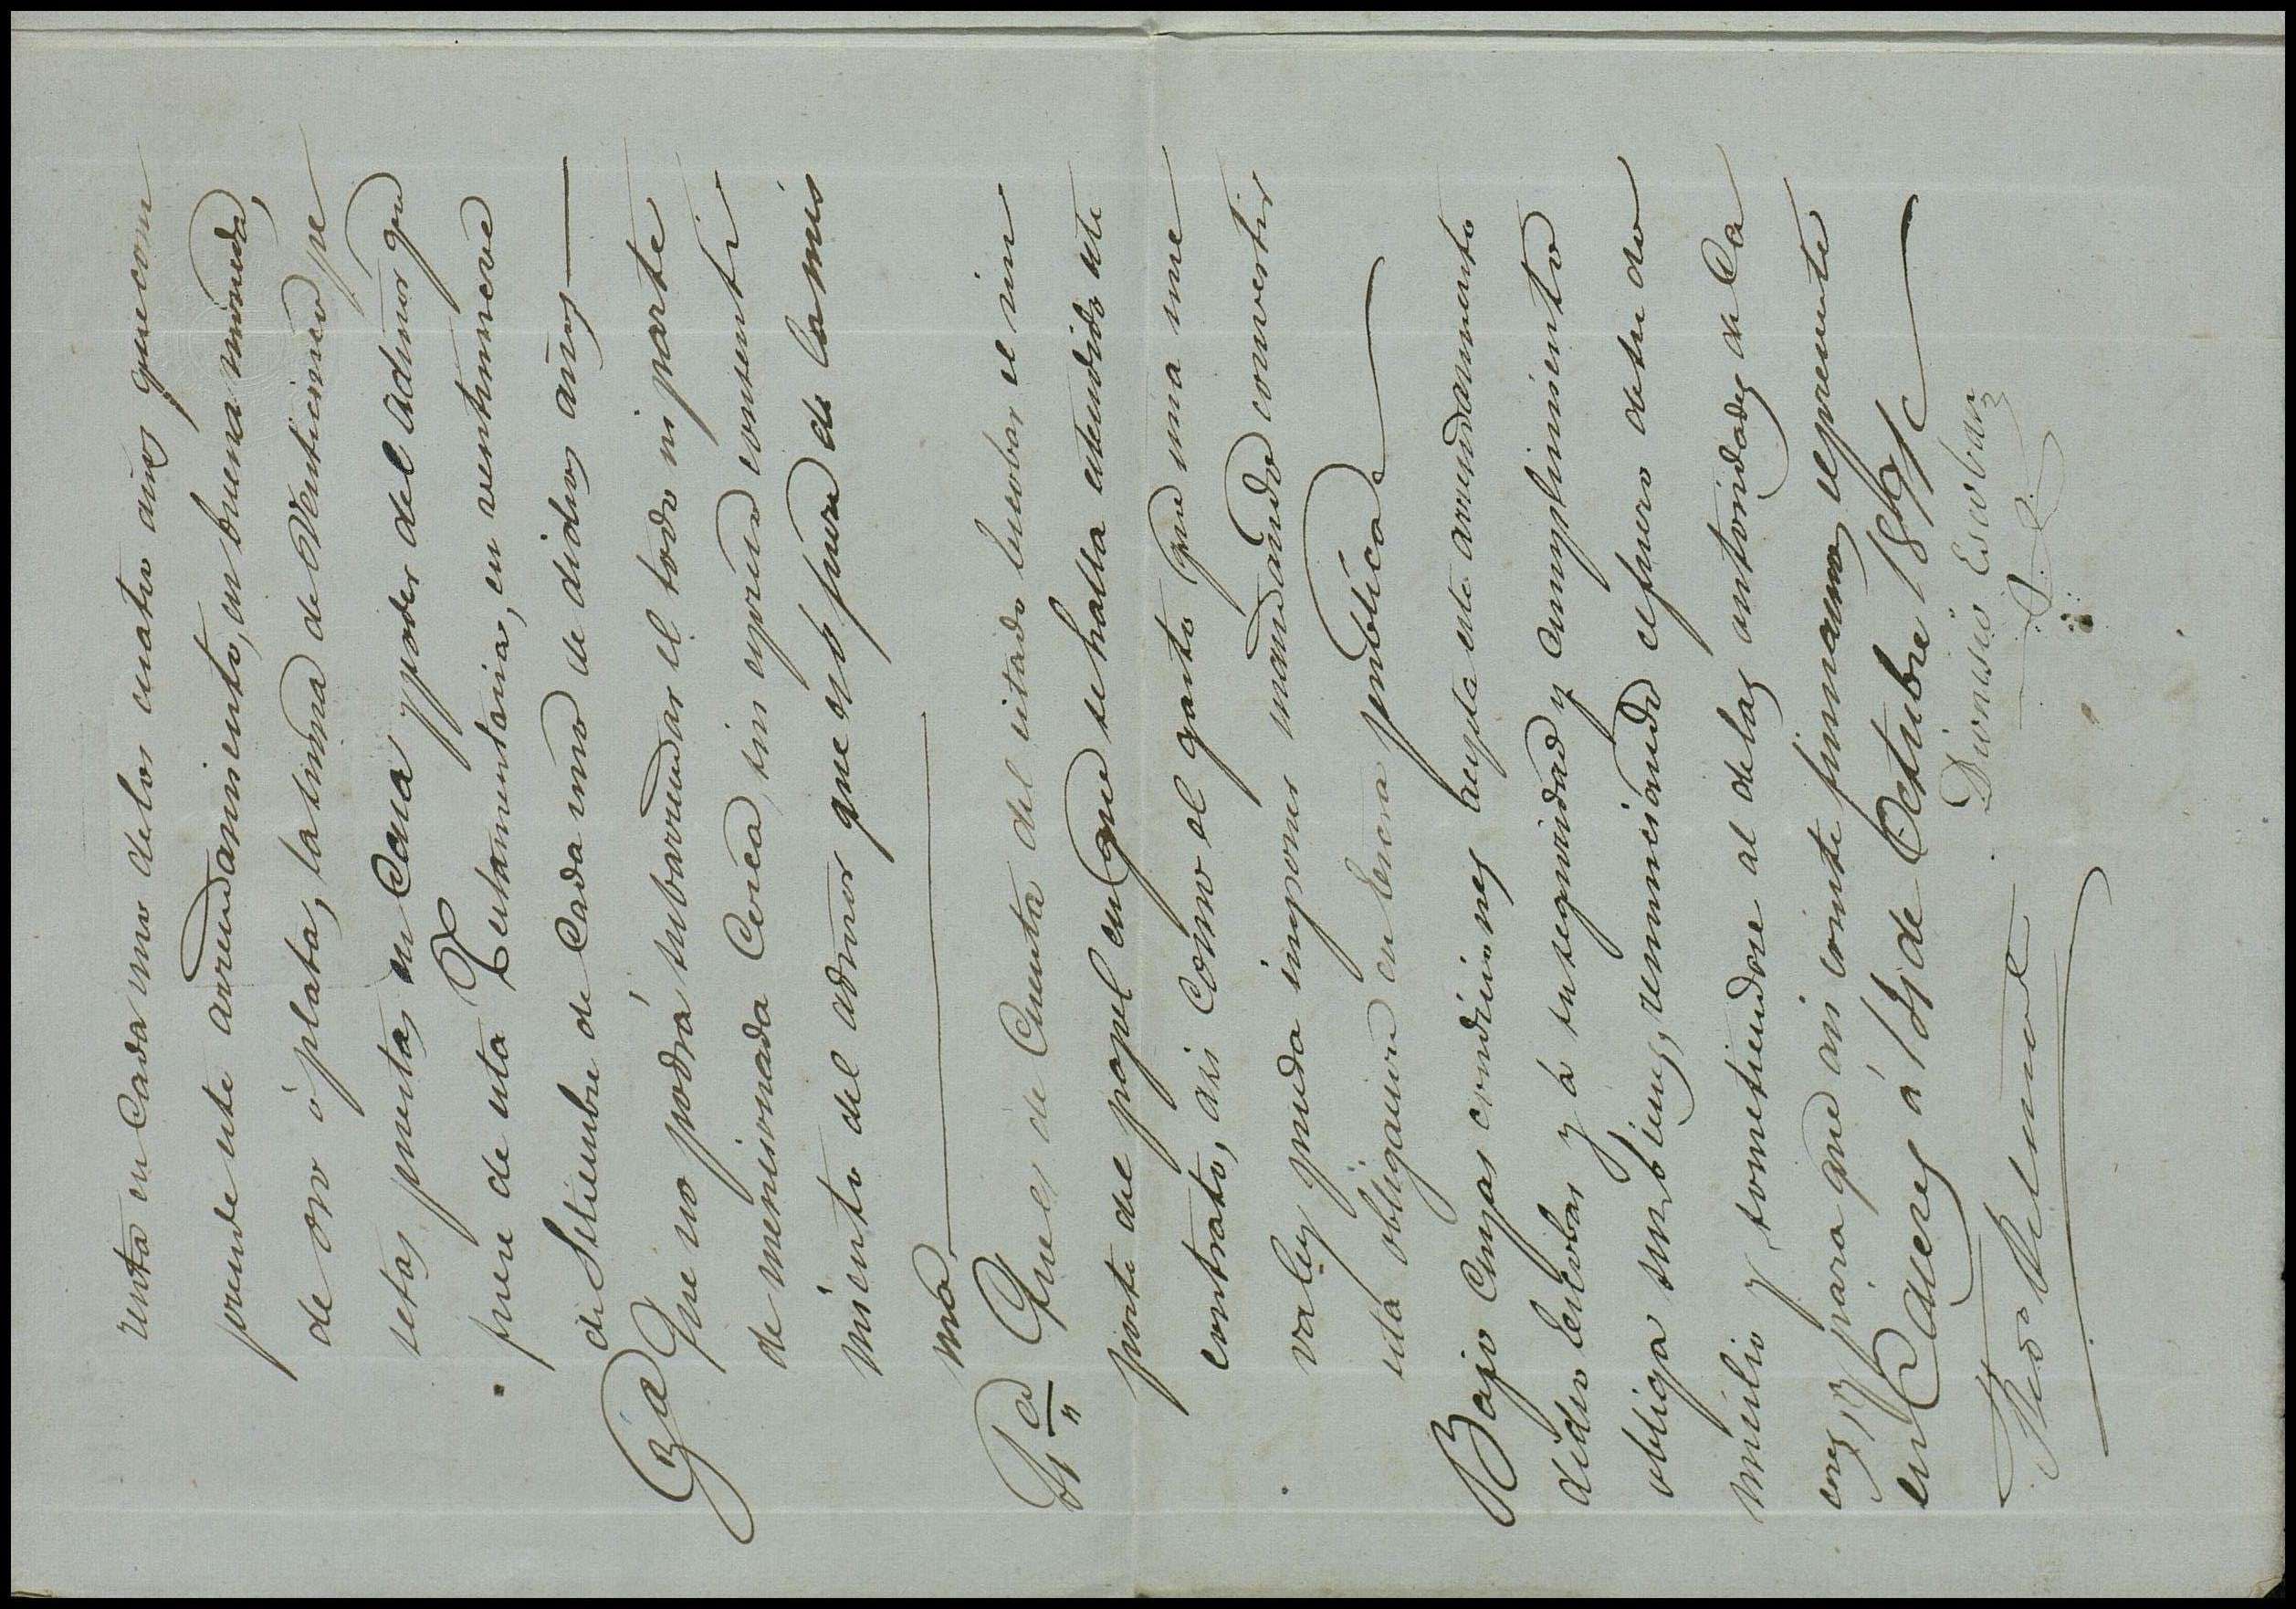 renta en Cada uno delos cuatro años que com
prende este arrendamiento, en buena moneda,
de oro ó plata, la suma de Veinticinco pe
setas puestas en Casa y poder del Admor que
fuere de esta Testamentaria, en veintinueve
de Setiembre de Cada uno de dichos años
3a Que no podrá subarrendar el todo ni parte
de mencionada Cerca, sin espreso consenti
miento del admor que es ó fuere de la mis
ma
4a Que es de Cuenta del citado Escobar el im
porte del papel en que se halla estendido este
contrato, asi como el gasto que una me
valey pueda imponer mandando convertir
esta obligacion en Escra publica
Bajo Cuyas condiciones acepta este arrendamiento
dicho Escobar y á su seguridad y cumplimiento
obliga sus bienes, renunciando el fuero de su do
micilio y sometiendose al delas autoridades de Ca
ceres; y para que asi conste firmamos el presente
en Caceres á 14 de Octubre 1871
Dionisio Escobar